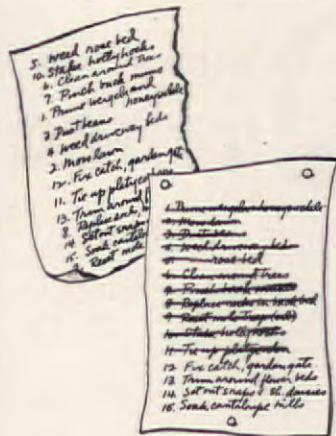 5. Weed rose bed
10. Stake hollyhocks
6. Clean around trees
7. Pinch back mums
1. Prune weigela and
honeysuckle
3. Dust beans
4. Weed driveway beds
2. Mow lawn
12. Fix catch, garden gate
11. Tie up platycodon
13. Trim around
8. Replace rock,
14. Set out snaps
15. Soak cantaloupe
9. Reset mole
1. Prune weigela & honeysuckle
2. Mow lawn
3. Dust beans
4. Weed driveway beds
5. " rose bed
6. Clean around trees
7. Pinch back mums
8. Replace rocks in bed
9. Reset mole trap
10. Stake hollyhocks
11. Tie up platycodon
12. Fix catch, garden gate.
13. Trim around flower beds
14. Set out snaps & Sh. daisies
15. Soak cantaloupe hills